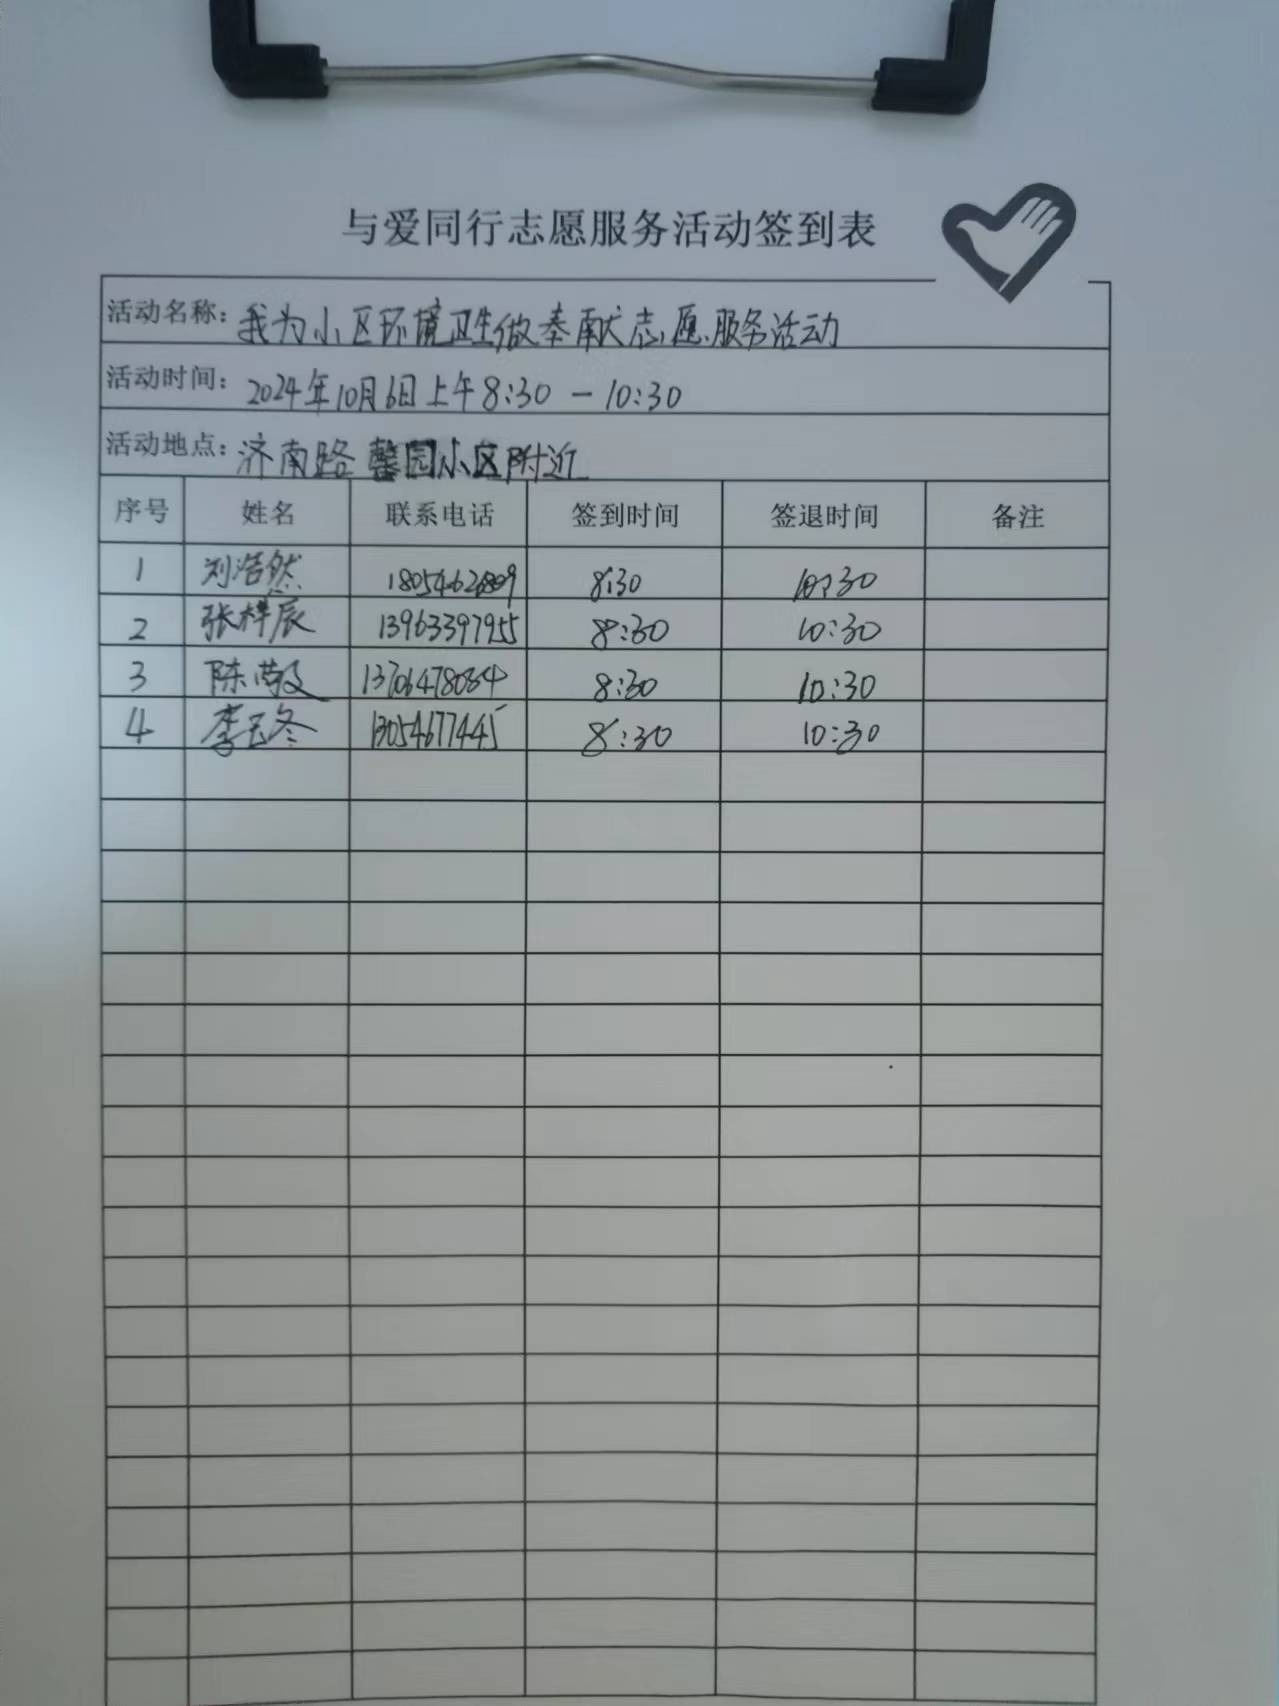 与爱同行志愿服务活动签到表
活动名称：我为小区环境卫生做奉献志愿服务活动
活动时间：2024年10月6日上午8:30-10:30
活动地点：济南路馨园小区附近
序号 姓名 联系电话 签到时间 签退时间 备注
1 刘浩然 8:30 10:30
2 张梓辰 13963397955 8:30 10:30
3 陈 13706478034 8:30 10:30
4 李玉冬 13054677445 8:30 10:30